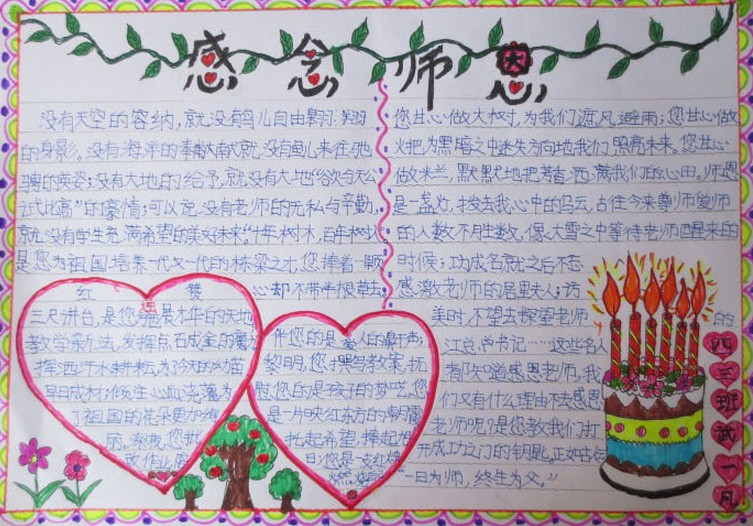 感念师恩
没有天空的容纳，就没有鸟儿自由翱翔
的身影。没有海洋的奉献就没有鱼儿来往驰
骋的英姿；没有大地的给予，就没有大地“欲与天公
试比高”的豪情；可以说没有老师的无私与辛勤，
就没有学生充满希望的美好未来。“十年树木，百年树人”
是您为祖国培养一代又一代的栋梁之才，您捧着一颗
心却不带半根草去。
红 赞
三尺讲台，是您
的天地
教学新法，发挥点石成金的魔
挥洒汗水耕耘，为了今天的幼苗
早日成材；倾注心血浇灌，为
了祖国的花朵更加绚
丽。深夜，您
改作业
伴您的是
人的鼾声，
黎明，您
教案，抚
慰您的是孩子的梦呓，您
是一片映红东方的朝霞
托起希望，捧起
日；您是一支红烛
燃
您甘心做大树，为我们遮风避雨；您甘心做
火把，为黑暗之中迷失方向地我们照亮未来。您甘心
做米兰，默默地把芳香洒满我们的心田。师恩
是一盏灯，拨去我心中的乌云，古往今来尊师爱师
的人数不胜数，像大雪之中等待老师醒来的
时候；功成名就之后不忘
感激老师的居里夫人；访
美时，不望去探望老师的
江总书记……这些名人
都知道感恩老师，我
们又有什么理由不去感恩
老师呢？是您教我们打
开成功之门的钥匙。正如古
“一日为师，终生为父。”
四三班武一凡